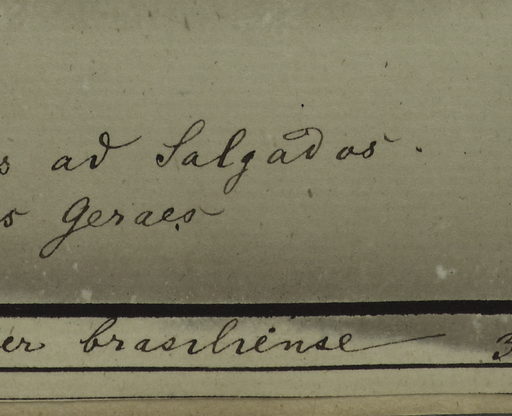 s ad Salgados.
s Geraes
er brasiliense 3